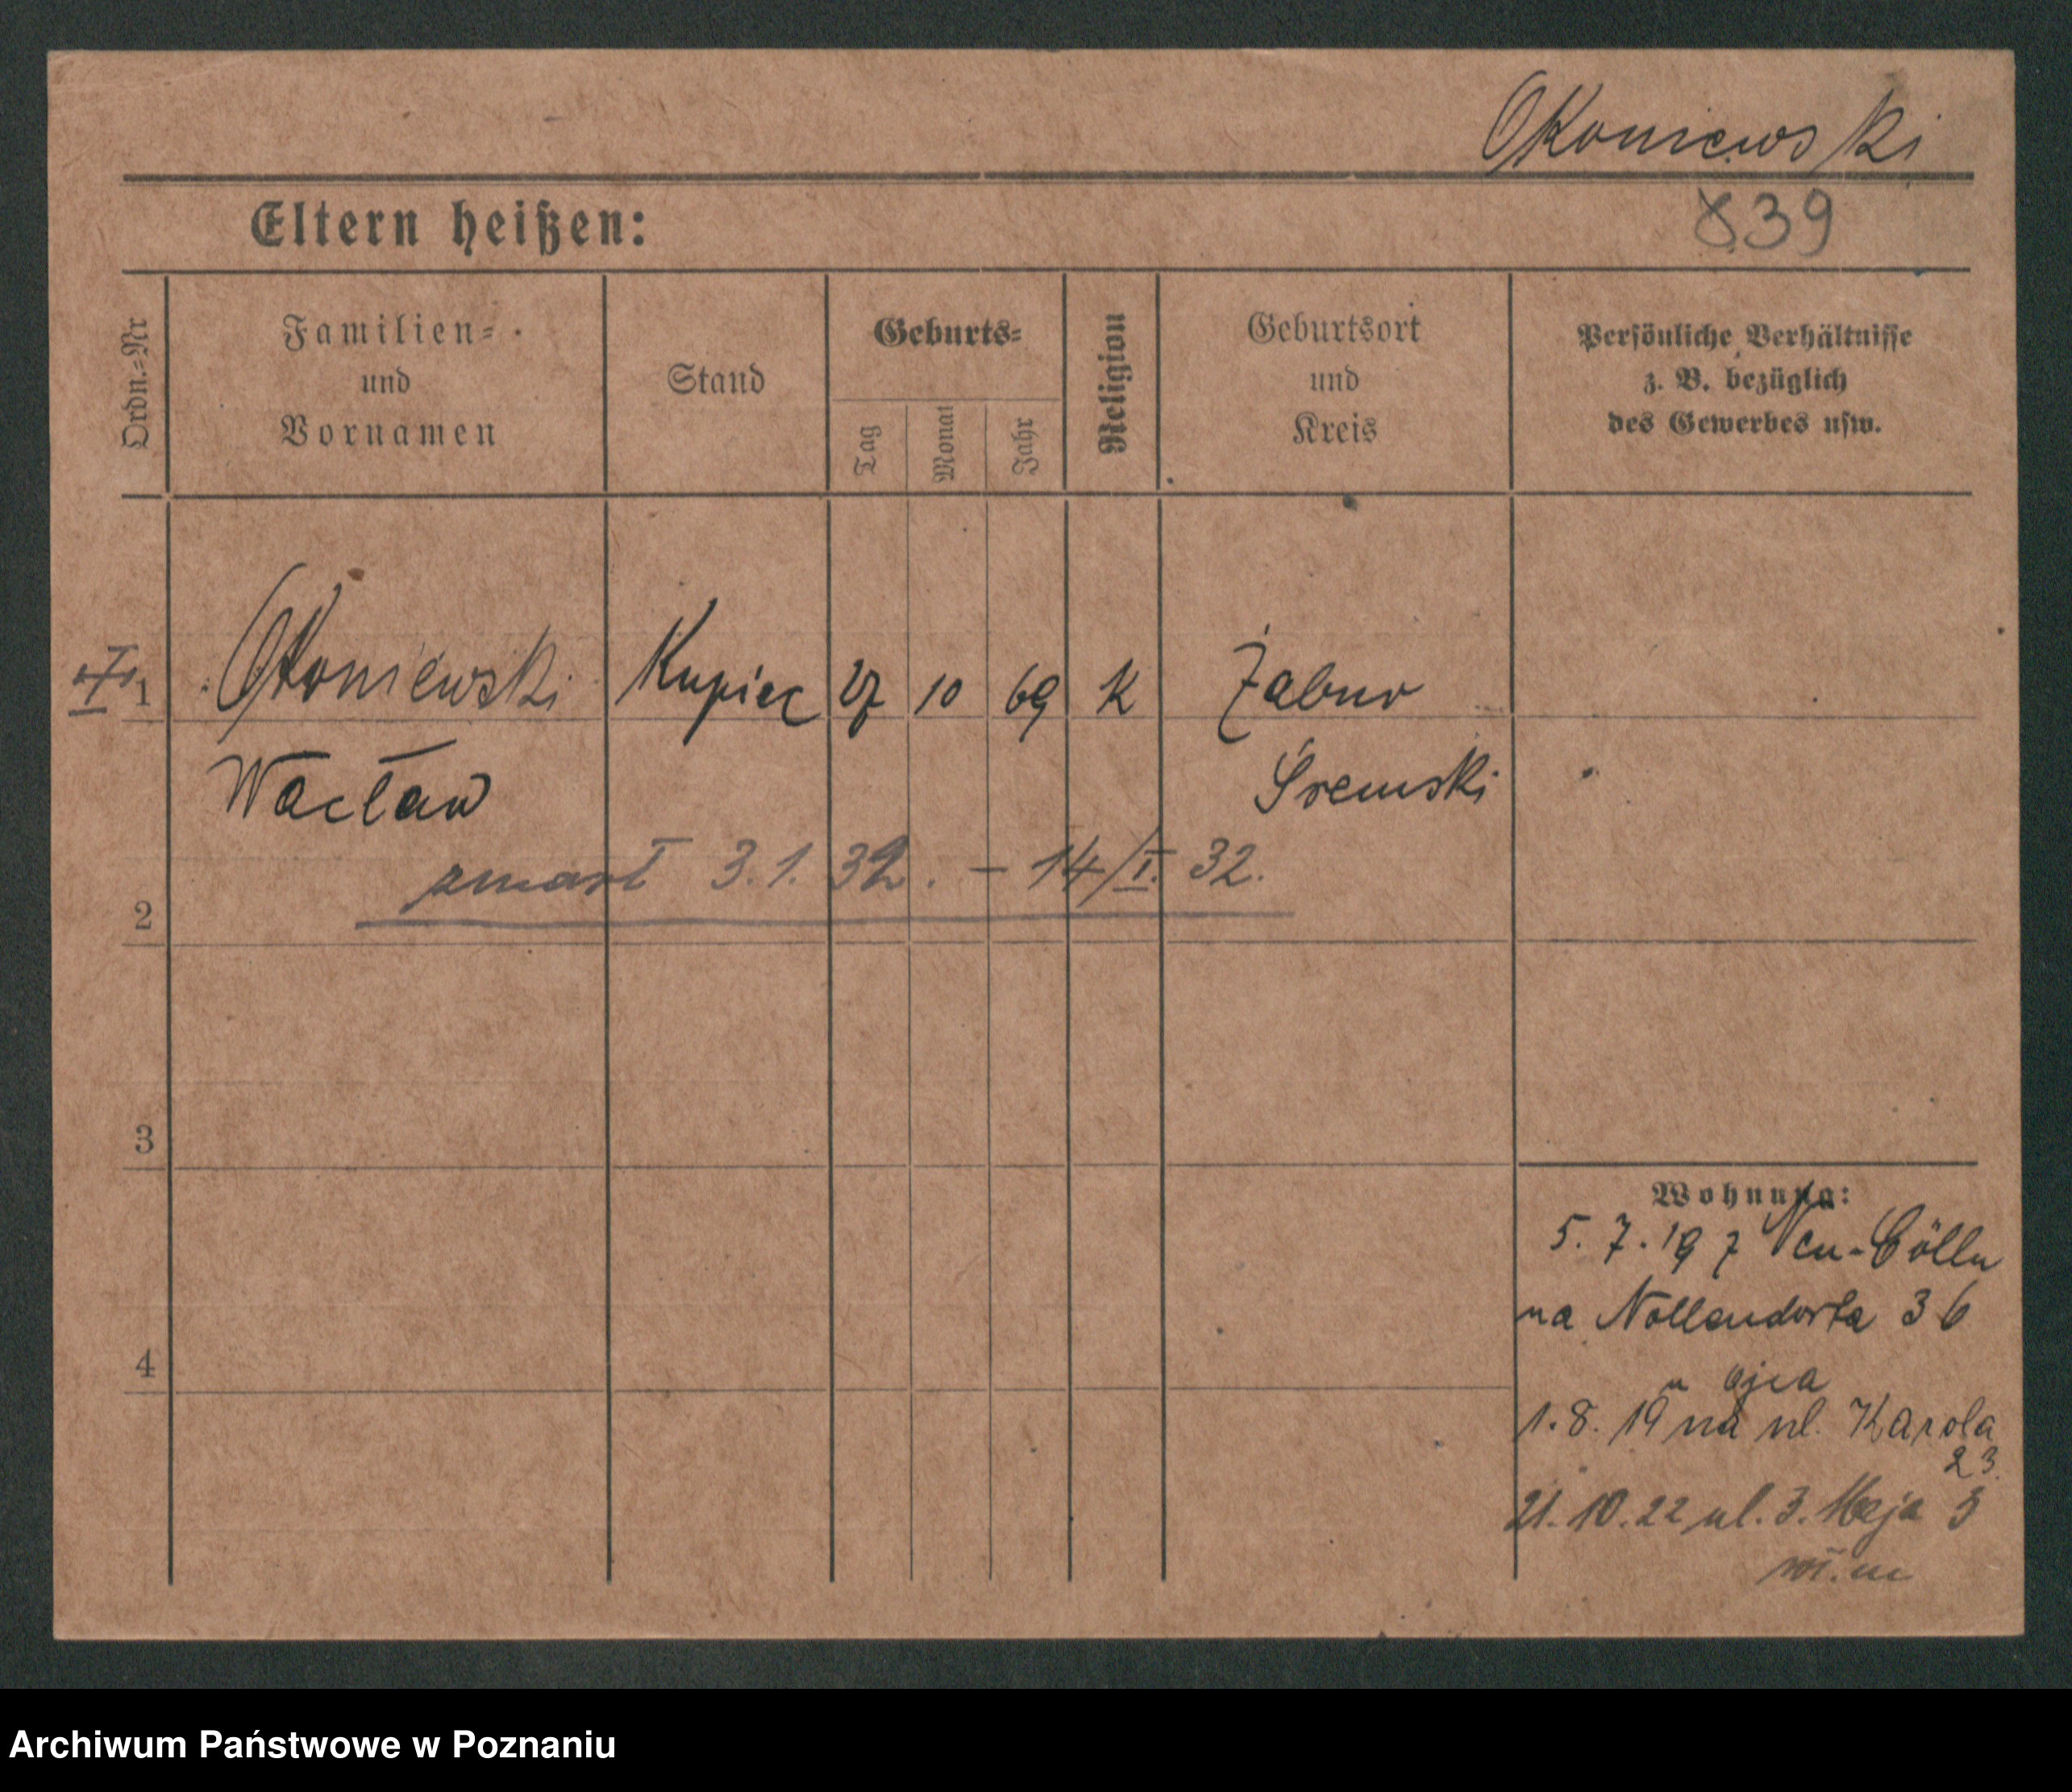 Okoniewski
839
Eltern heißen:
Ordn.=Nr
Familien=
und
Vornamen
Stand
Geburts=
Tag
Monat
Jahr
Religion
Geburtsort
und
Kreis
Persönliche Verhältnisse
z. B. bezüglich
des Gewerbes usw.
1 Okoniewski Kupiec 27 10 69 K Żabno
Wacław Śremski
zmarł 3.1.32. – 14/I. 32.
2
3
4
Wohnung:
5. 7. 19 z Neu-Cölln
na Nollendorfa 36
u ojca
1. 8. 19 na ul. Karola
23.
21.10.22 ul. 3. Maja 3
Archiwum Państwowe w Poznaniu